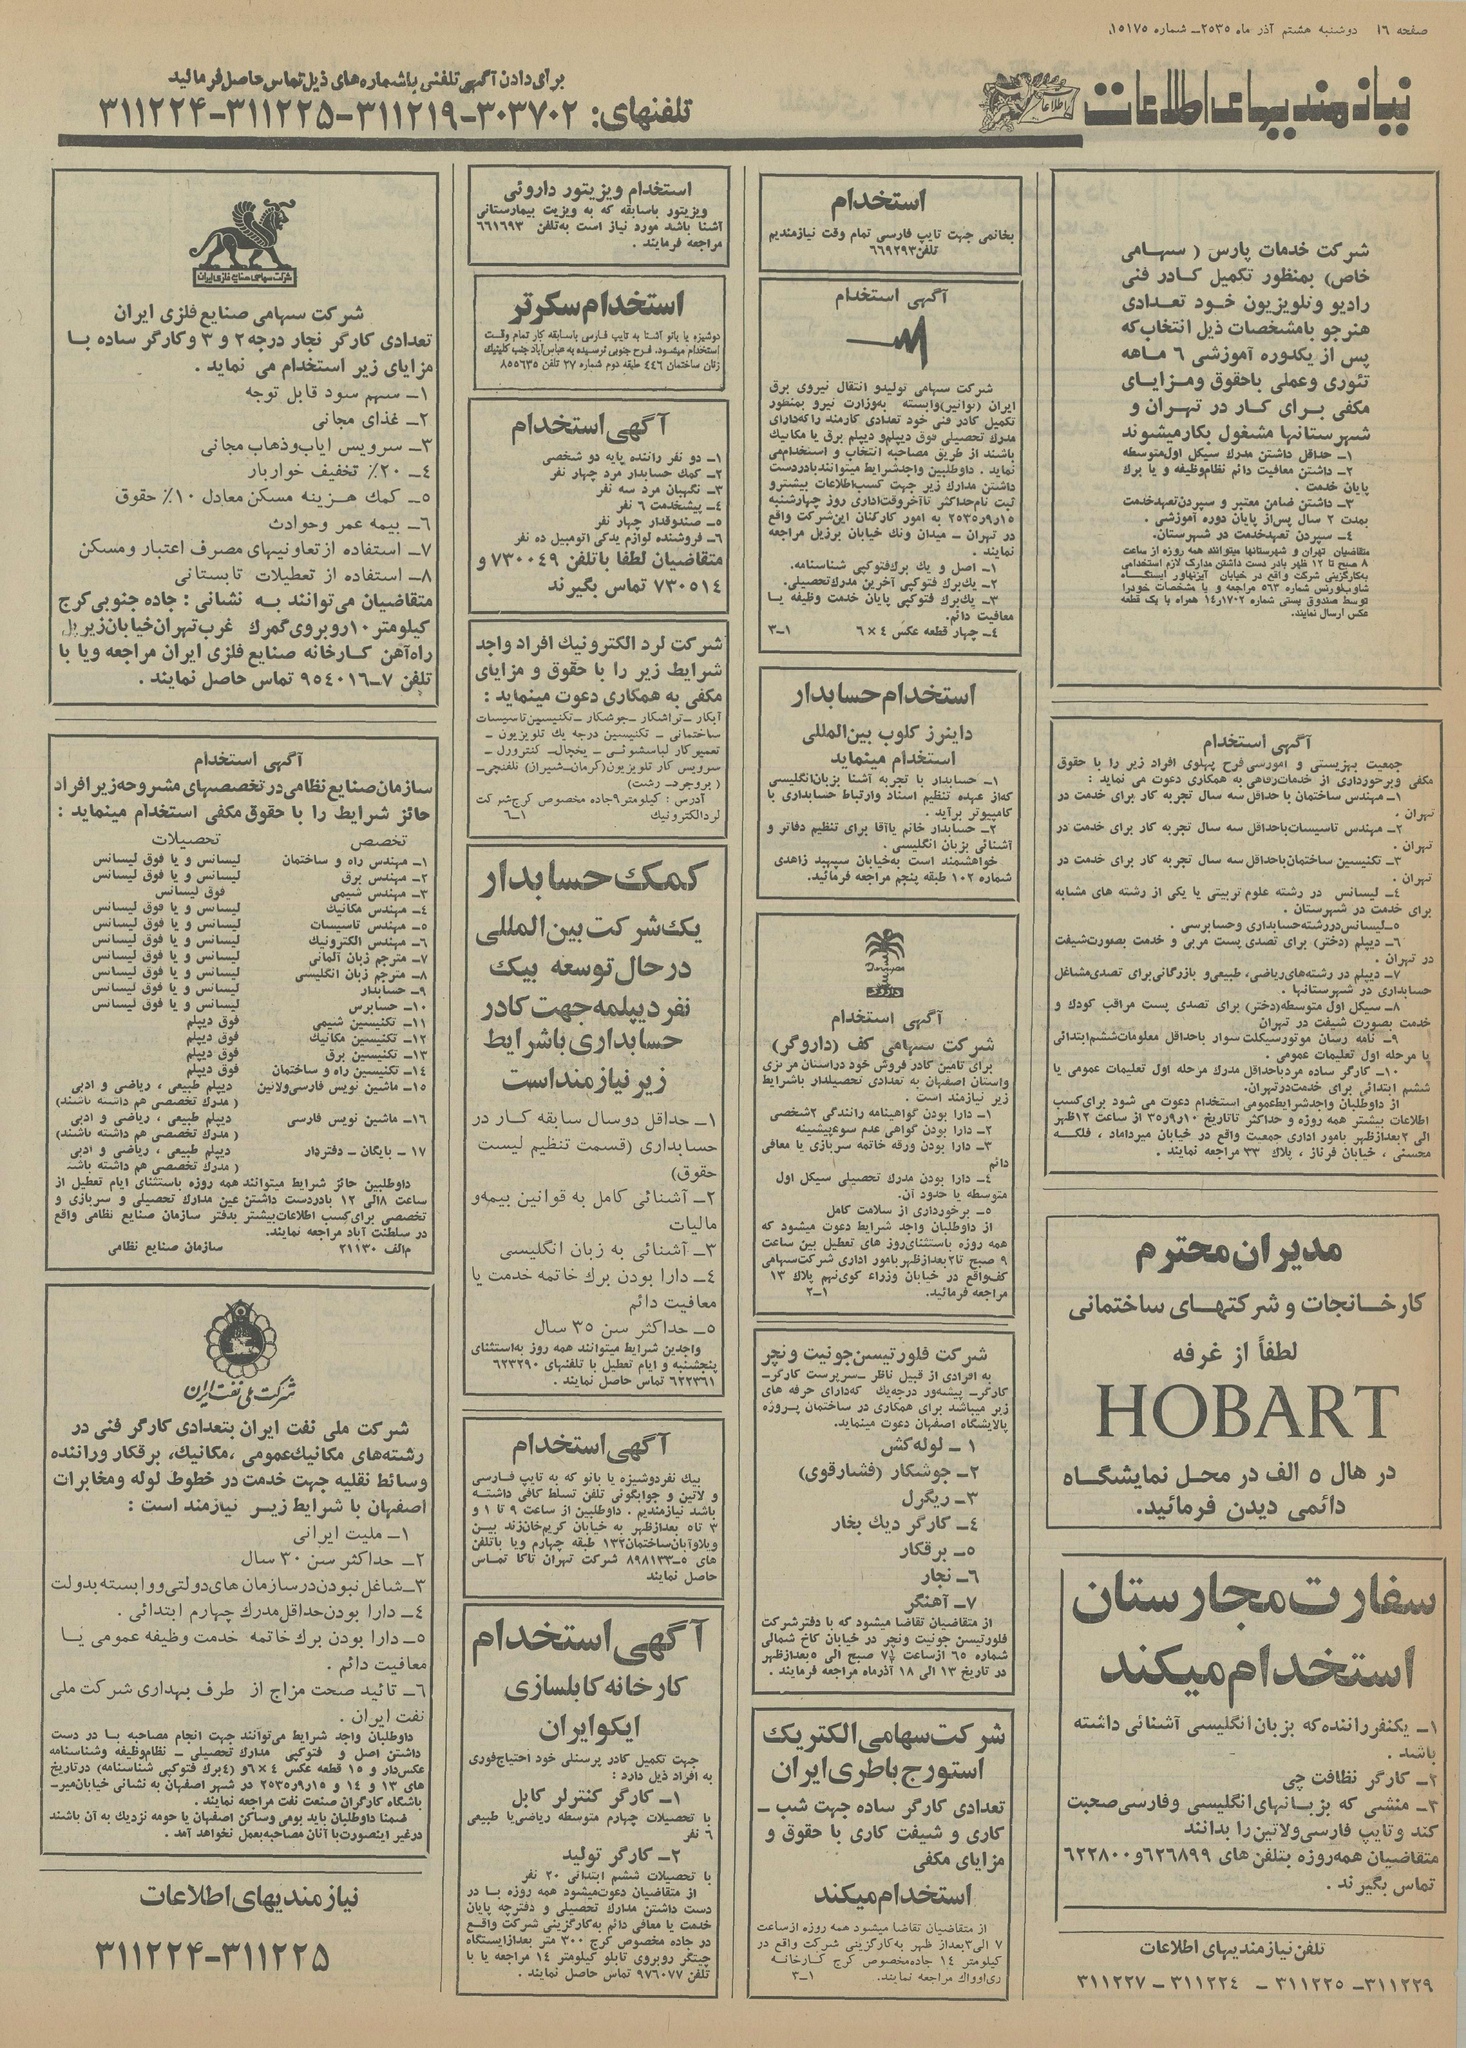 صفحه ۱۶ دوشنبه هشتم آذر ماه ۲۵۳۵ــ شماره ۱۵۱۷۵
نیازمندیهای اطلاعات
اطلاعات
برای دادن آگهی تلفنی باشماره‌های ذیل تماس حاصل فرمائید
تلفنهای: ۳۰۳۷۰۲-۳۱۱۲۱۹-۳۱۱۲۲۵-۳۱۱۲۲۴
شرکت خدمات پارس (سهامی
خاص) بمنظور تکمیل کادر فنی
رادیو وتلویزیون خود تعدادی
هنرجو بامشخصات ذیل انتخاب‌که
پس از یکدوره آموزشی ۶ ماهه
تئوری وعملی باحقوق ومزایای
مکفی برای کار در تهران و
شهرستانها مشغول بکارمیشوند
۱ــ حداقل داشتن مدرک سیکل اول‌متوسطه
۲ــ داشتن معافیت دائم نظام‌وظیفه و یا برک
پایان خدمت .
۳ــ داشتن ضامن معتبر و سپردن‌تعهدخدمت
بمدت ۲ سال پس‌از پایان دوره آموزشی .
۴ــ سپردن تعهدخدمت در شهرستان.
متقاضیان تهران و شهرستانها میتوانند همه روزه از ساعت
۸ صبح تا ۱۲ ظهر بادر دست داشتن مدارک لازم استخدامی
به‌کارگزینی شرکت واقع در خیابان آیزنهاور ایستگاه
شماره ۵۶۳ مراجعه و یا مشخصات خودرا
توسط صندوق پستی شماره ۱۴٫۱۷۰۲ همراه با یک قطعه
عکس ارسال نمایند.
آگهی استخدام
جمعیت بهزیستی و آموزشی فرح پهلوی افراد زیر را با حقوق
مکفی وبرخورداری از خدمات‌رفاهی به همکاری دعوت می نماید :
۱ــ مهندس ساختمان با حداقل سه سال تجربه کار برای خدمت در
تهران .
۲ــ مهندس تاسیسات باحداقل سه سال تجربه کار برای خدمت در
تهران .
۳ــ تکنیسین ساختمان باحداقل سه سال تجربه کار برای خدمت در
تهران .
۴ــ لیسانس در رشته علوم تربیتی یا یکی از رشته های مشابه
برای خدمت در شهرستان .
۵ــ لیسانس‌دررشته‌حسابداری وحسابرسی .
۶ــ دیپلم (دختر) برای تصدی پست مربی و خدمت بصورت‌شیفت
در تهران .
۷ــ دیپلم در رشته‌های‌ریاضی، طبیعی‌و بازرگانی‌برای تصدی‌مشاغل
حسابداری در شهرستانها .
۸ــ سیکل اول متوسطه(دختر) برای تصدی پست مراقب کودک و
خدمت بصورت شیفت در تهران
۹ــ نامه رسان موتورسیکلت سوار باحداقل معلومات‌ششم‌ابتدائی
یا مرحله اول تعلیمات عمومی .
۱۰ــ کارگر ساده مردباحداقل مدرک مرحله اول تعلیمات عمومی یا
ششم ابتدائی برای خدمت‌درتهران.
از داوطلبان واجدشرایط‌عمومی استخدام دعوت می شود برای‌کسب
اطلاعات بیشتر همه روزه و حداکثر تاتاریخ ۳۵٫۹٫۱۰ از ساعت ۱۲ظهر
الی ۲بعدازظهر بامور اداری جمعیت واقع در خیابان میرداماد ، فلکه
محسنی ، خیابان فرناز ، پلاک ۳۳ مراجعه نمایند .
مدیران محترم
کارخانجات و شرکتهای ساختمانی
لطفاً از غرفه
HOBART
در هال ۵ الف در محل نمایشگاه
دائمی دیدن فرمائید.
سفارت مجارستان
استخدام میکند
۱ــ یکنفر راننده که بزبان انگلیسی آشنائی داشته
باشد .
۲ــ کارگر نظافت چی
۳ــ منشی که بزبانهای انگلیسی وفارسی صحبت
کند وتایپ فارسی ولاتین را بدانند
متقاضیان همه‌روزه بتلفن های ۶۲۶۸۹۹و۶۲۲۸۰۰
تماس بگیرند .
تلفن نیازمندیهای اطلاعات
۳۱۱۲۲۹ــ ۳۱۱۲۲۵ ــ ۳۱۱۲۲۴ ــ ۳۱۱۲۲۷
استخدام
بخانمی جهت تایپ فارسی تمام وقت نیازمندیم
تلفن۶۶۹۲۹۳
آگهی استخدام
شرکت سهامی تولیدو انتقال نیروی برق
ایران (توانیر)وابسته به‌وزارت نیرو بمنظور
تکمیل کادر فنی خود تعدادی کارمند راکه‌دارای
مدرک تحصیلی فوق دیپلم‌و دیپلم برق یا مکانیک
باشند از طریق مصاحبه انتخاب و استخدام‌می
نماید . داوطلبین واجدشرایط میتوانندبادردست
داشتن مدارک زیر جهت کسب‌اطلاعات بیشترو
ثبت نام‌حداکثر تاآخروقت‌اداری روز چهارشنبه
۲۵۳۵٫۹٫۱۵ به امور کارکنان این‌شرکت واقع
در تهران ــ میدان ونک خیابان برزیل مراجعه
نمایند .
۱ــ اصل و یک برک‌فتوکپی شناسنامه.
۲ــ یک‌برک فتوکپی آخرین مدرک‌تحصیلی.
۳ــ یک‌برک فتوکپی پایان خدمت وظیفه یا
معافیت دائم.
۴ــ چهار قطعه عکس ۴ × ۶ ۱ــ۳
استخدام حسابدار
داینرز کلوب بین‌المللی
استخدام مینماید
۱ــ حسابدار با تجربه آشنا بزبان‌انگلیسی
که‌از عهده تنظیم اسناد وارتباط حسابداری با
کامپیوتر برآید .
۲ــ حسابدار خانم یاآقا برای تنظیم دفاتر و
آشنائی بزبان انگلیسی .
خواهشمند است به‌خیابان سپهبد زاهدی
شماره ۱۰۲ طبقه پنجم مراجعه فرمائید.
داروگر
آگهی استخدام
شرکت سهامی کف (داروگر)
برای تامین کادر فروش خود دراستان مرکزی
واستان اصفهان به تعدادی تحصیلدار باشرایط
زیر نیازمند است .
۱ــ دارا بودن گواهینامه رانندگی ۲شخصی
۲ــ دارا بودن گواهی عدم سوءپیشینه
۳ــ دارا بودن ورقه خاتمه سربازی یا معافی
دائم
۴ــ دارا بودن مدرک تحصیلی سیکل اول
متوسطه یا حدود آن.
۵ــ برخورداری از سلامت کامل
از داوطلبان واجد شرایط دعوت میشود که
همه روزه باستثنای‌روز های تعطیل بین ساعت
۹ صبح تا۲بعدازظهربامور اداری شرکت‌سهامی
کف‌واقع در خیابان وزراء کوی‌نهم پلاک ۱۳
مراجعه فرمائید. ۱ــ۲
شرکت فلورتیسن‌جونیت ونچر
به افرادی از قبیل ناظر ــ سرپرست کارگرــ
کارگرــ پیشه‌ور درجه‌یک که‌دارای حرفه های
زیر میباشد برای همکاری در ساختمان پروژه
پالایشگاه اصفهان دعوت مینماید.
۱ــ لوله‌کش
۲ــ جوشکار (فشارقوی)
۳ــ ریگرل
۴ــ کارگر دیگ بخار
۵ــ برقکار
۶ــ نجار
۷ــ آهنگر
از متقاضیان تقاضا میشود که با دفترشرکت
فلورتیسن جونیت ونچر در خیابان کاخ شمالی
شماره ۶۵ ازساعت ۷½ صبح الی ۵بعدازظهر
در تاریخ ۱۳ الی ۱۸ آذرماه مراجعه فرمایند .
شرکت سهامی الکتریک
استورج باطری ایران
تعدادی کارگر ساده جهت شب ــ
کاری و شیفت کاری با حقوق و
مزایای مکفی
استخدام میکند
از متقاضیان تقاضا میشود همه روزه ازساعت
۷ الی۳بعداز ظهر به‌کارگزینی شرکت واقع در
کیلومتر ۱۴ جاده‌مخصوص کرج کارخانه
ری‌اوواک مراجعه نمایند. ۱ــ۳
استخدام ویزیتور داروئی
ویزیتور باسابقه که به ویزیت بیمارستانی
آشنا باشد مورد نیاز است به‌تلفن ۶۶۱۶۹۳
مراجعه فرمایند .
استخدام سکرتر
دوشیزه یا بانو آشنا به تایپ فارسی باسابقه کار تمام وقت
استخدام میشود. فرح جنوبی نرسیده به عباس‌آباد جنب کلینیک
زنان ساختمان ۴۴۶ طبقه دوم شماره ۲۷ تلفن ۸۵۵۶۳۵
آگهی استخدام
۱ــ دو نفر راننده پایه دو شخصی
۲ــ کمک حسابدار مرد چهار نفر
۳ــ نگهبان مرد سه نفر
۴ــ پیشخدمت ۶ نفر
۵ــ صندوقدار چهار نفر
۶ــ فروشنده لوازم یدکی اتومبیل ده نفر
متقاضیان لطفا باتلفن ۷۳۰۰۴۹ و
۷۳۰۵۱۴ تماس بگیرند
شرکت لرد الکترونیک افراد واجد
شرایط زیر را با حقوق و مزایای
مکفی به همکاری دعوت مینماید :
آبکار ــ تراشکار ــ جوشکار ــ تکنیسین‌تاسیسات
ساختمانی ــ تکنیسین درجه یک تلویزیون ــ
تعمیرکار لباسشوئی ــ یخچال‌ــ کنترورل ــ
سرویس کار تلویزیون(کرمان‌ــ‌شیراز) تلفنچی‌ــ
( بروجرد‌ــ رشت)
آدرس : کیلومتر۹جاده مخصوص کرج‌شرکت
لردالکترونیک ۱ــ۶
کمک حسابدار
یک شرکت بین المللی
درحال توسعه بیک
نفر دیپلمه جهت کادر
حسابداری باشرایط
زیر نیازمند است
۱ــ حداقل دوسال سابقه کار در
حسابداری (قسمت تنظیم لیست
حقوق)
۲ــ آشنائی کامل به قوانین بیمه‌و
مالیات
۳ــ آشنائی به زبان انگلیسی
۴ــ دارا بودن برک خاتمه خدمت یا
معافیت دائم
۵ــ حداکثر سن ۳۵ سال
واجدین شرایط میتوانند همه روز به‌استثنای
پنجشنبه و ایام تعطیل با تلفنهای ۶۲۳۲۹۰
۶۲۲۳۶۱ تماس حاصل نمایند .
آگهی استخدام
بیک نفردوشیزه یا بانو که به تایپ فارسی
و لاتین و جوابگوئی تلفن تسلط کافی داشته
باشد نیازمندیم . داوطلبین از ساعت ۹ تا ۱ و
۳ تا۵ بعدازظهر به خیابان کریم‌خان‌زند بین
ویلاوآبان‌ساختمان۱۳۲ طبقه چهارم ویا باتلفن
های ۵ــ۸۹۸۱۳۳ شرکت تهران تاکا تماس
حاصل نمایند
آگهی استخدام
کارخانه کابلسازی
ایکوایران
جهت تکمیل کادر پرسنلی خود احتیاج‌فوری
به افراد ذیل دارد :
۱ــ کارگر کنترلر کابل
با تحصیلات چهارم متوسطه ریاضی‌یا طبیعی
۶ نفر
۲ــ کارگر تولید
با تحصیلات ششم ابتدائی ۲۰ نفر
از متقاضیان دعوت‌میشود همه روزه با در
دست داشتن مدارک تحصیلی و دفترچه پایان
خدمت یا معافی دائم به‌کارگزینی شرکت واقع
در جاده مخصوص کرج ۳۰۰ متر بعدازایستگاه
چیتگر روبروی تابلو کیلومتر ۱۴ مراجعه یا با
تلفن ۹۷۶۰۷۷ تماس حاصل نمایند .
شرکت سهامی صنایع فلزی ایران
شرکت سهامی صنایع فلزی ایران
تعدادی کارگر نجار درجه ۲ و ۳ وکارگر ساده با
مزایای زیر استخدام می نماید .
۱ــ سهم سود قابل توجه
۲ــ غذای مجانی
۳ــ سرویس ایاب‌وذهاب مجانی
۴ــ ۲۰٪ تخفیف خواربار
۵ــ کمک هزینه مسکن معادل ۱۰٪ حقوق
۶ــ بیمه عمر وحوادث
۷ــ استفاده ازتعاونیهای مصرف اعتبار ومسکن
۸ــ استفاده از تعطیلات تابستانی
متقاضیان می‌توانند به نشانی : جاده جنوبی کرج
کیلومتر ۱۰روبروی گمرک غرب‌تهران‌خیابان زیرپل
راه‌آهن کارخانه صنایع فلزی ایران مراجعه ویا با
تلفن ۷ــ۹۵۴۰۱۶ تماس حاصل نمایند .
آگهی استخدام
سازمان صنایع نظامی در تخصصهای مشروحه زیر افراد
حائز شرایط را با حقوق مکفی استخدام مینماید :
تخصص تحصیلات
۱ــ مهندس راه و ساختمان لیسانس و یا فوق لیسانس
۲ــ مهندس برق لیسانس و یا فوق لیسانس
۳ــ مهندس شیمی فوق لیسانس
۴ــ مهندس مکانیک لیسانس و یا فوق لیسانس
۵ــ مهندس تاسیسات لیسانس و یا فوق لیسانس
۶ــ مهندس الکترونیک لیسانس و یا فوق لیسانس
۷ــ مترجم زبان آلمانی لیسانس و یا فوق لیسانس
۸ــ مترجم زبان انگلیسی لیسانس و یا فوق لیسانس
۹ــ حسابدار لیسانس و یا فوق لیسانس
۱۰ــ حسابرس لیسانس و یا فوق لیسانس
۱۱ــ تکنیسین شیمی فوق دیپلم
۱۲ــ تکنیسین مکانیک فوق دیپلم
۱۳ــ تکنیسین برق فوق دیپلم
۱۴ــ تکنیسین راه و ساختمان فوق دیپلم
۱۵ــ ماشین نویس فارسی‌ولاتین دیپلم طبیعی ، ریاضی و ادبی
( مدرک تخصصی هم داشته باشند)
۱۶ــ ماشین نویس فارسی دیپلم طبیعی ، ریاضی و ادبی
(مدرک تخصصی هم داشته باشند)
۱۷ ــ بایگان ــ دفتردار دیپلم طبیعی ، ریاضی و ادبی
( مدرک تخصصی هم داشته باشد
داوطلبین حائز شرایط میتوانند همه روزه باستثنای ایام تعطیل از
ساعت ۸الی ۱۲ بادردست داشتن عین مدارک تحصیلی و سربازی و
تخصصی برای‌کسب اطلاعات‌بیشتر بدفتر سازمان صنایع نظامی واقع
در سلطنت آباد مراجعه نمایند.
م‌الف ۲۱۱۳۰ سازمان صنایع نظامی
شرکت ملی نفت ایران
شرکت ملی نفت ایران بتعدادی کارگر فنی در
رشته‌های مکانیک‌عمومی ،مکانیک، برقکار وراننده
وسائط نقلیه جهت خدمت در خطوط لوله ومخابرات
اصفهان با شرایط زیر نیازمند است :
۱ــ ملیت ایرانی
۲ــ حداکثر سن ۳۰ سال
۳ــ‌شاغل نبودن‌درسازمان های‌دولتی‌ووابسته بدولت
۴ــ دارا بودن‌حداقل‌مدرک چهارم ابتدائی .
۵ــ دارا بودن برک خاتمه خدمت وظیفه عمومی یا
معافیت دائم .
۶ــ تائید صحت مزاج از طرف بهداری شرکت ملی
نفت ایران .
داوطلبان واجد شرایط می‌توانند جهت انجام مصاحبه با در دست
داشتن اصل و فتوکپی مدارک تحصیلی ــ نظام‌وظیفه وشناسنامه
عکس‌دار و ۱۵ قطعه عکس ۴ × ۶و (۴برک فتوکپی شناسنامه) درتاریخ
های ۱۳ و ۱۴ و ۲۵۳۵٫۹٫۱۵ در شهر اصفهان به نشانی خیابان‌میرــ
باشگاه کارگران صنعت نفت مراجعه نمایند .
ضمنا داوطلبان باید بومی وساکن اصفهان یا حومه نزدیک به آن باشند
درغیر اینصورت‌با آنان مصاحبه‌بعمل نخواهد آمد .
نیازمندیهای اطلاعات
۳۱۱۲۲۵-۳۱۱۲۲۴